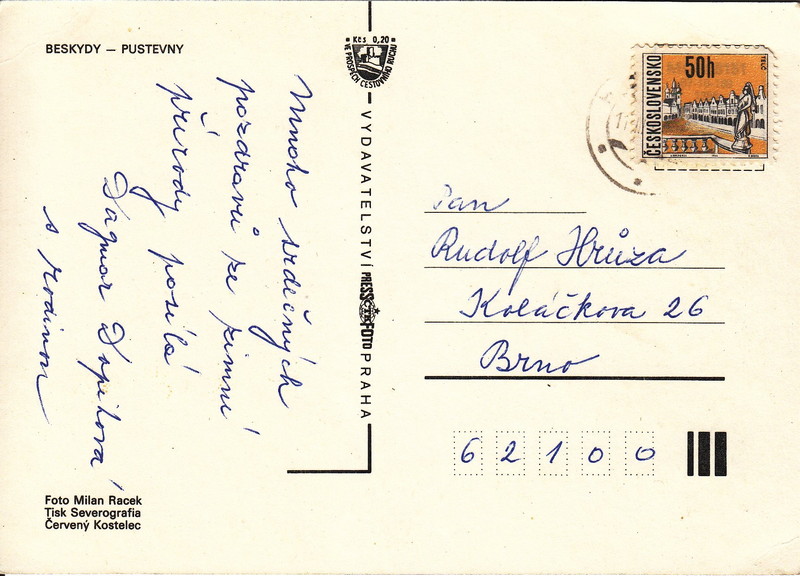 BESKYDY — PUSTEVNY
Mnoho srdečných
pozdravů ze zimní
přírody posílá
Dagmar
s rodinou
Foto Milan Racek
Tisk Severografia
Červený Kostelec
Kčs 0,20
VE PROSPĚCH CESTOVNÍHO RUCHU
VYDAVATELSTVÍ PRESSFOTO PRAHA
ČTK
ČESKOSLOVENSKO
50h
TELČ
Pan
Rudolf Hrůza
Koláčkova 26
Brno
62100